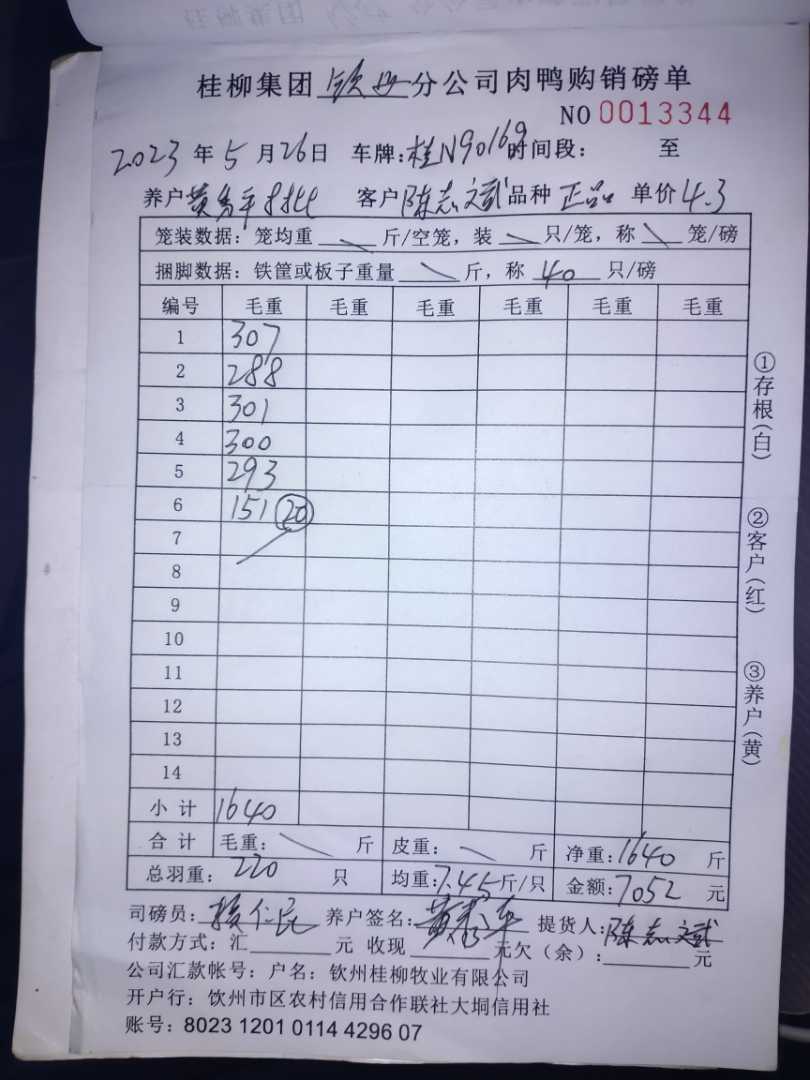 桂柳集团 钦州 分公司肉鸭购销磅单
NO 0013344
2023 年 5 月 26 日 车牌:桂N90169 时间段: 至
养户 黄 客户 陈志斌 品种 正品 单价 4.3
笼装数据: 笼均重 斤/空笼, 装 只/笼, 称 笼/磅
捆脚数据: 铁筐或板子重量 斤, 称 40 只/磅
编号 毛重 毛重 毛重 毛重 毛重 毛重
1 307
2 288
3 301
4 300
5 293
6 151 20
7
8
9
10
11
12
13
14
小计 1640
合计 毛重: 斤 皮重: 斤 净重: 1640 斤
总羽重: 220 只 均重: 7.45 斤/只 金额: 7052 元
司磅员: 养户签名: 黄 提货人: 陈志斌
付款方式: 汇 元 收现 元欠(余): 元
公司汇款帐号: 户名: 钦州桂柳牧业有限公司
开户行: 饮州市区农村信用合作联社大垌信用社
账号: 8023 1201 0114 4296 07
①存根(白)
②客户(红)
③养户(黄)